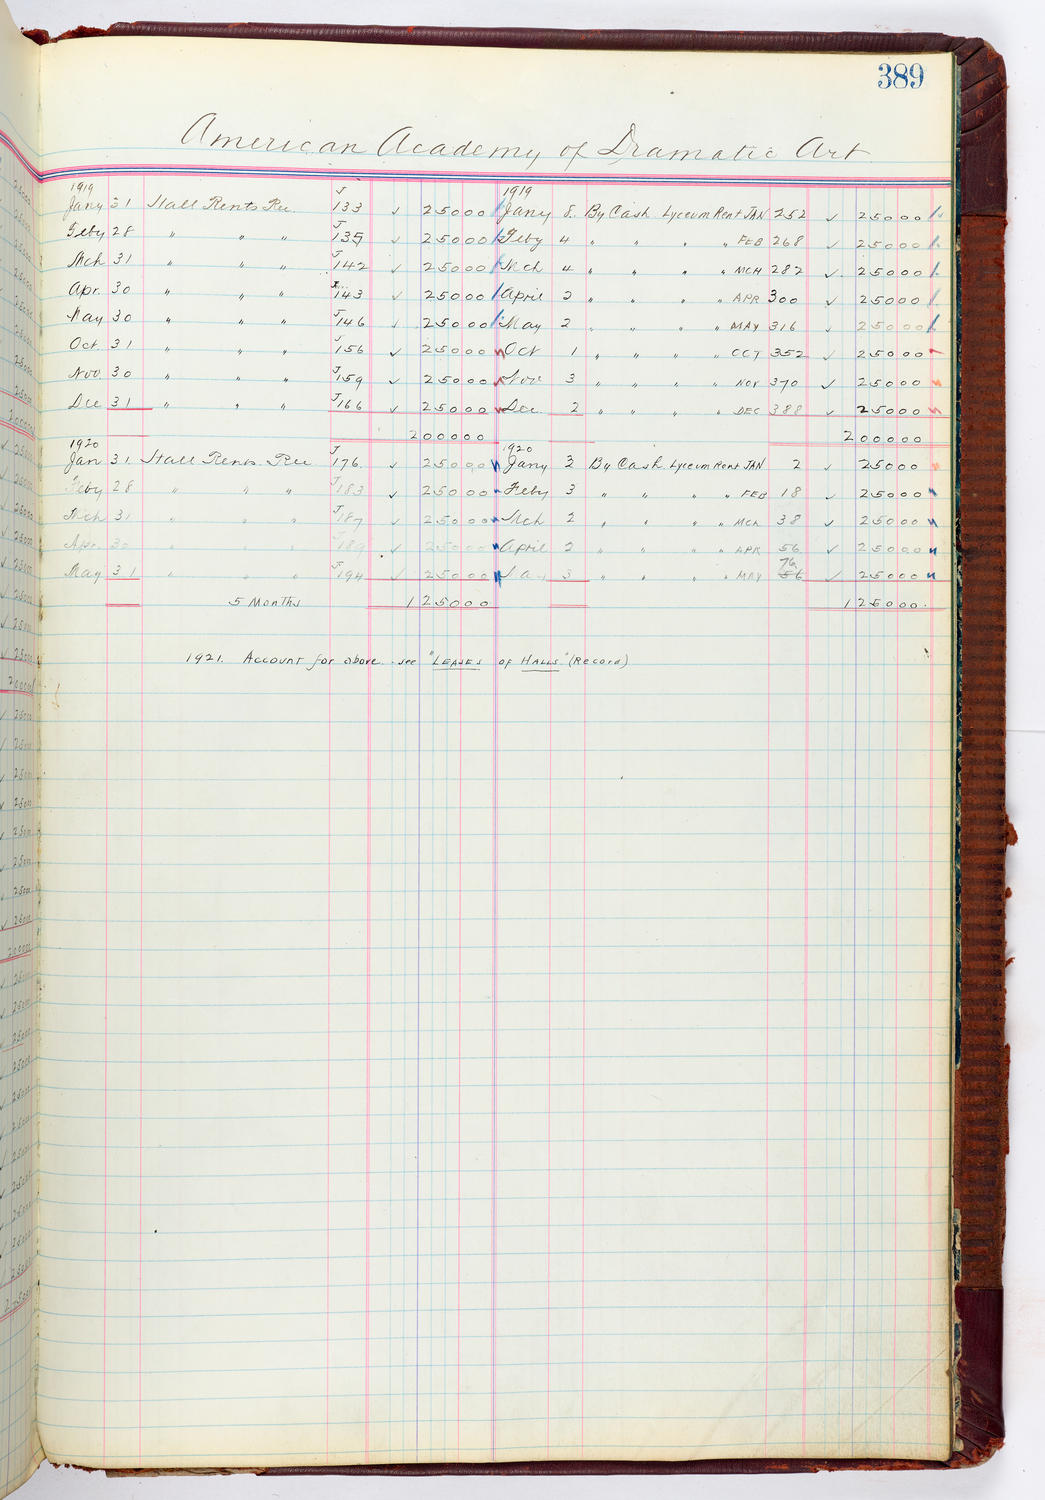 389
American Academy of Dramatic Art
1919 1919
Jany 31 Hall Rents Rec. J 133 ✓ 25000 Jany 8. By Cash Lyceum Rent JAN 252 ✓ 25000
Feby 28 " " " J 135 ✓ 25000 Feby 4 " " " " FEB 268 ✓ 25000
Mch 31 " " " J 142 ✓ 25000 Mch 4 " " " " MCH 282 ✓ 25000
Apr. 30 " " " J 143 ✓ 25000 April 2 " " " " APR 300 ✓ 25000
May 30 " " " J 146 ✓ 25000 May 2 " " " " MAY 316 ✓ 25000
Oct. 31 " " " J 156 ✓ 25000 Oct 1 " " " " OCT 352 ✓ 25000
Nov. 30 " " " J 159 ✓ 25000 Nov 3 " " " " NOV 370 ✓ 25000
Dec 31 " " " J 166 ✓ 25000 Dec 2 " " " " DEC 388 ✓ 25000
200000 200000
1920 1920
Jan 31. Hall Rents. Rec J 176. ✓ 25000 Jany 2 By Cash Lyceum Rent JAN 2 ✓ 25000
Feby 28 " " " J 183 ✓ 25000 Feby 3 " " " " FEB 18 ✓ 25000
Mch 31 " " " J 187 ✓ 25000 Mch 2 " " " " MCH 38 ✓ 25000
Apr. 30 " " " J 189 ✓ 25000 April 2 " " " " APR 56 ✓ 25000
May 31 " " " J 194 ✓ 25000 May 3 " " " " MAY 56 76 ✓ 25000
5 Months 125000 125000.
1921. Account for above. see "LEASES of HALLS" (Record)